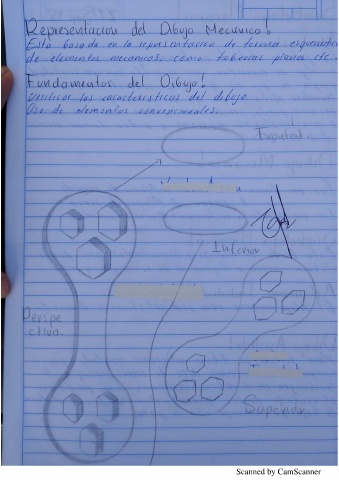 Representacion del Dibujo Mecanico!
Esta basada en la representacion de forma esquematica
de elementos mecanicos, como tuberias planos etc.
Fundamentos del Dibujo!
Verificar las caracteristicas del dibujo.
Uso de elementos convencionales.
Frontal
Inferior
Perspe
ctiva
Superior
Scanned by CamScanner